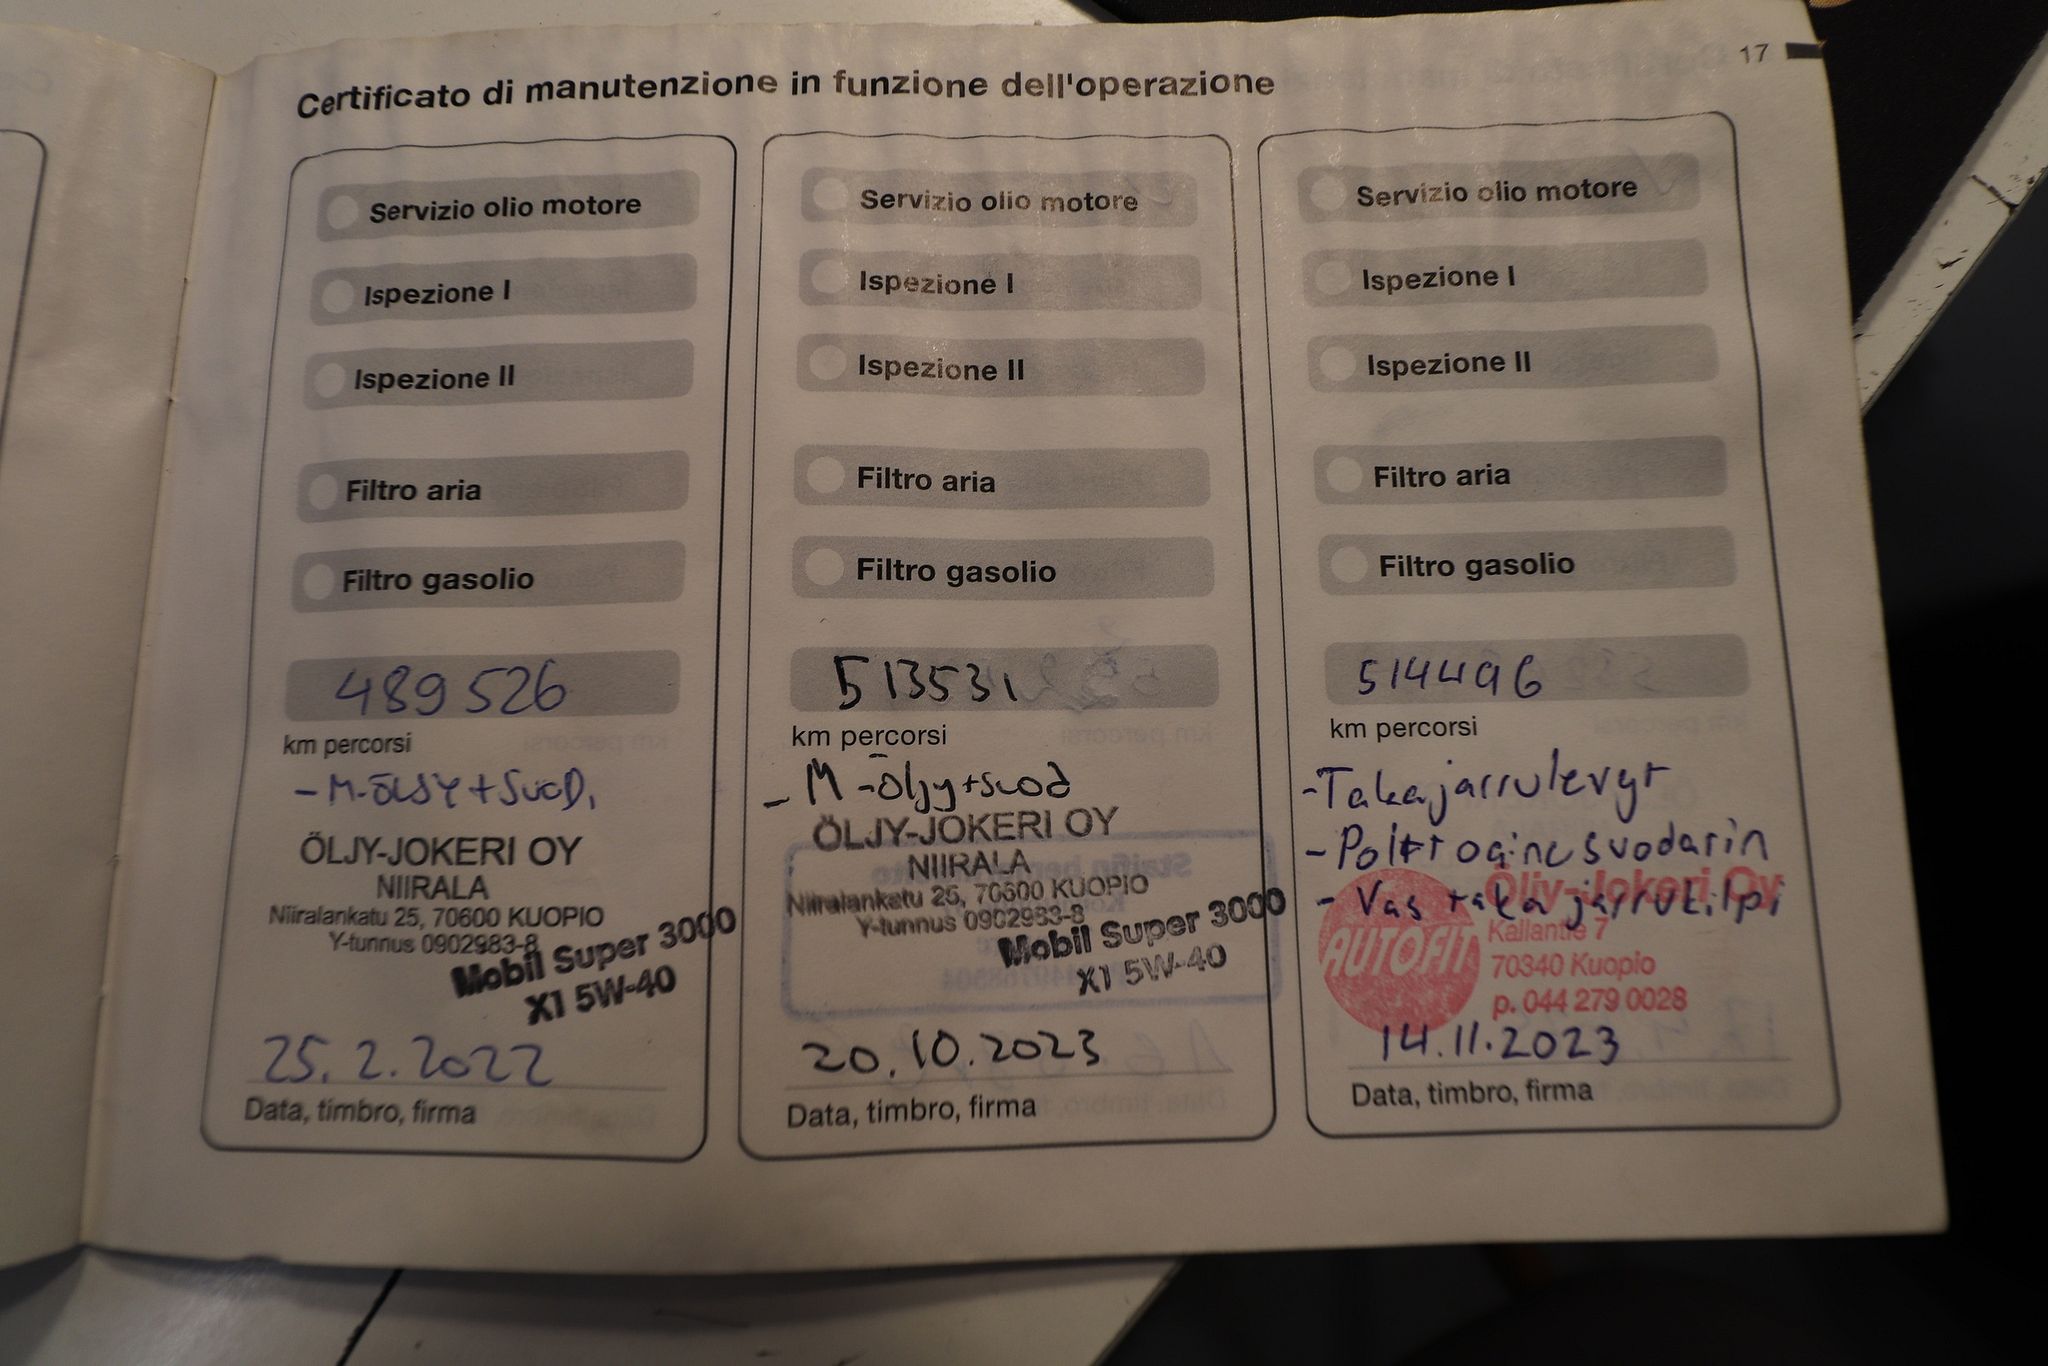 17
Certificato di manutenzione in funzione dell'operazione
Servizio olio motore
Ispezione I
Ispezione II
Filtro aria
Filtro gasolio
489 526
km percorsi
- M-ÖLJY + SUOD.
ÖLJY-JOKERI OY
NIIRALA
Niiralankatu 25, 70600 KUOPIO
Y-tunnus 0902983-8
Mobil Super 3000
X1 5W-40
25.2.2022
Data, timbro, firma
Servizio olio motore
Ispezione I
Ispezione II
Filtro aria
Filtro gasolio
513531
km percorsi
- M-öljy+suod
ÖLJY-JOKERI OY
NIIRALA
Niiralankatu 25, 70600 KUOPIO
Y-tunnus 0902983-8
Mobil Super 3000
X1 5W-40
20.10.2023
Data, timbro, firma
Servizio olio motore
Ispezione I
Ispezione II
Filtro aria
Filtro gasolio
514496
km percorsi
- Takajarrulevyt
- Polttoainesuodatin
- Vas taka jarrukilpi
Öljy-Jokeri Oy
AUTOFIT
Kallantie 7
70340 Kuopio
p. 044 279 0028
14.11.2023
Data, timbro, firma